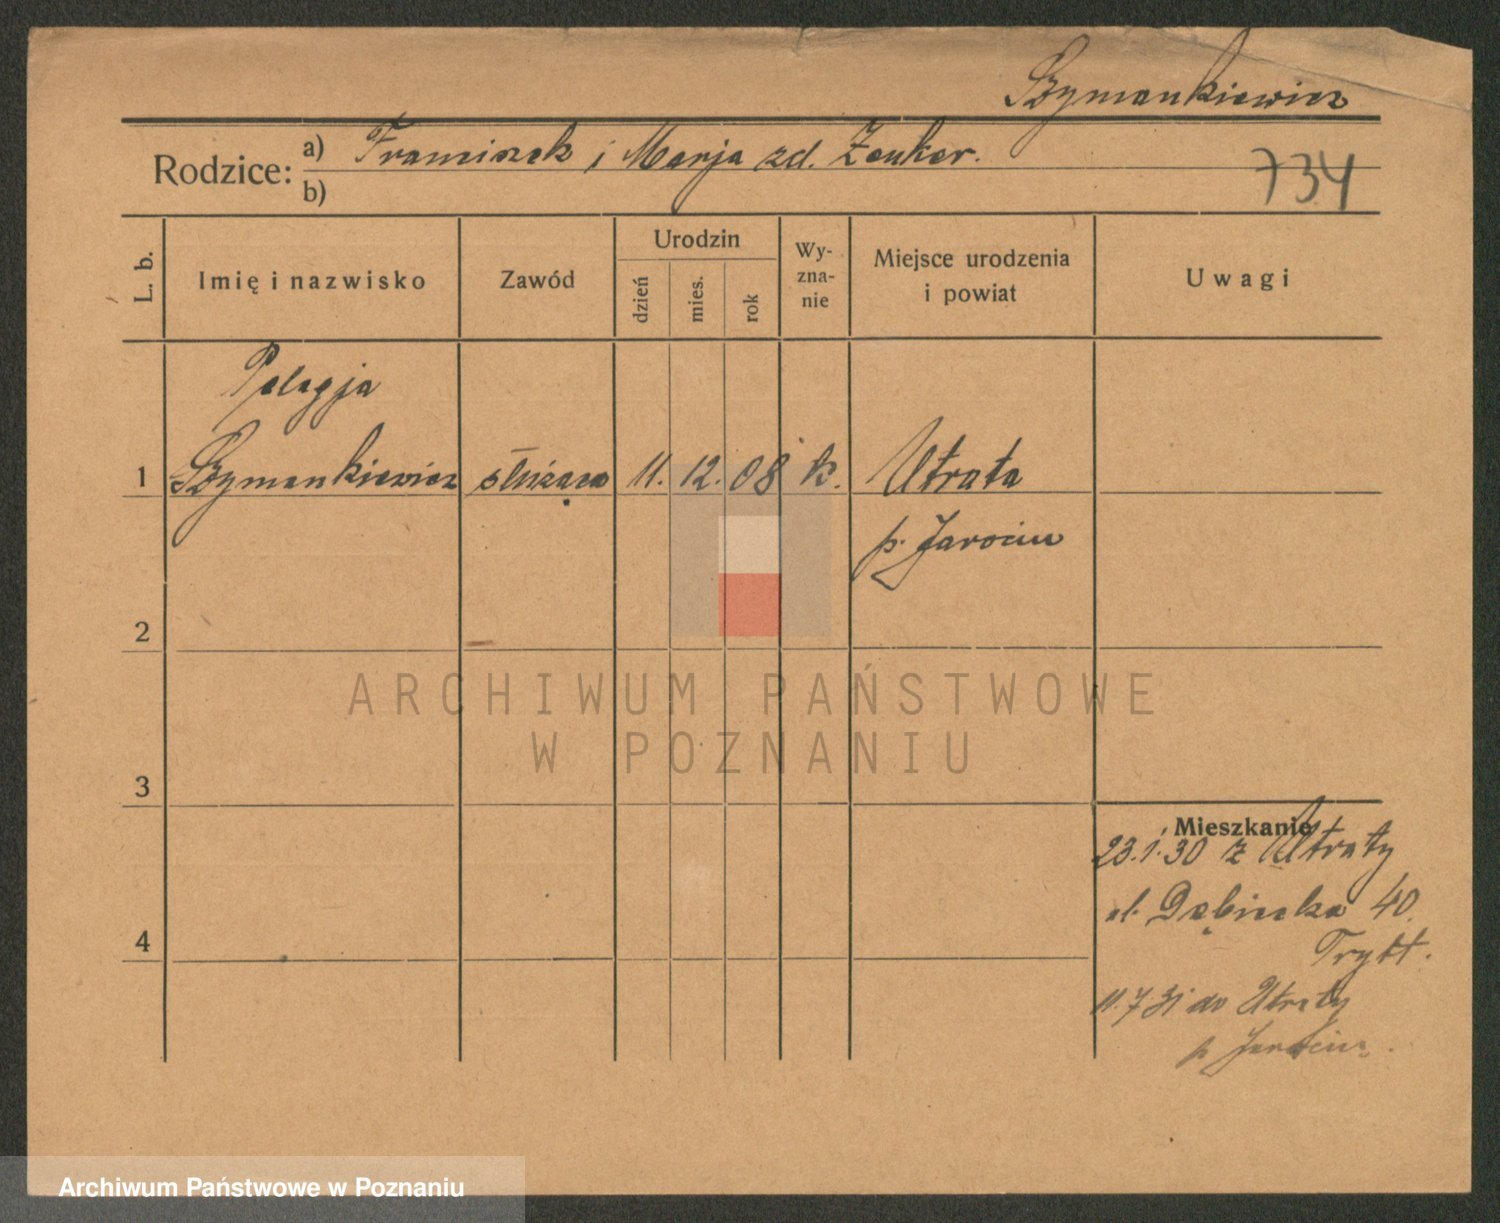 Szymankiewicz
Rodzice: a) Franciszek i Marja zd. Zenker.
b)
734
L. b.
Imię i nazwisko
Zawód
Urodzin
dzień
mies.
rok
Wy-
zna-
nie
Miejsce urodzenia
i powiat
Uwagi
Pelagja
1 Szymankiewicz służąca 11. 12. 08 k. Utrata
p. Jarocin
2
3
4
Mieszkanie
23.1.30 z Utraty
ul. Dąbiecka 40.
11.7.31 do Utraty
p Jarocin.
ARCHIWUM PAŃSTWOWE
W POZNANIU
Archiwum Państwowe w Poznaniu